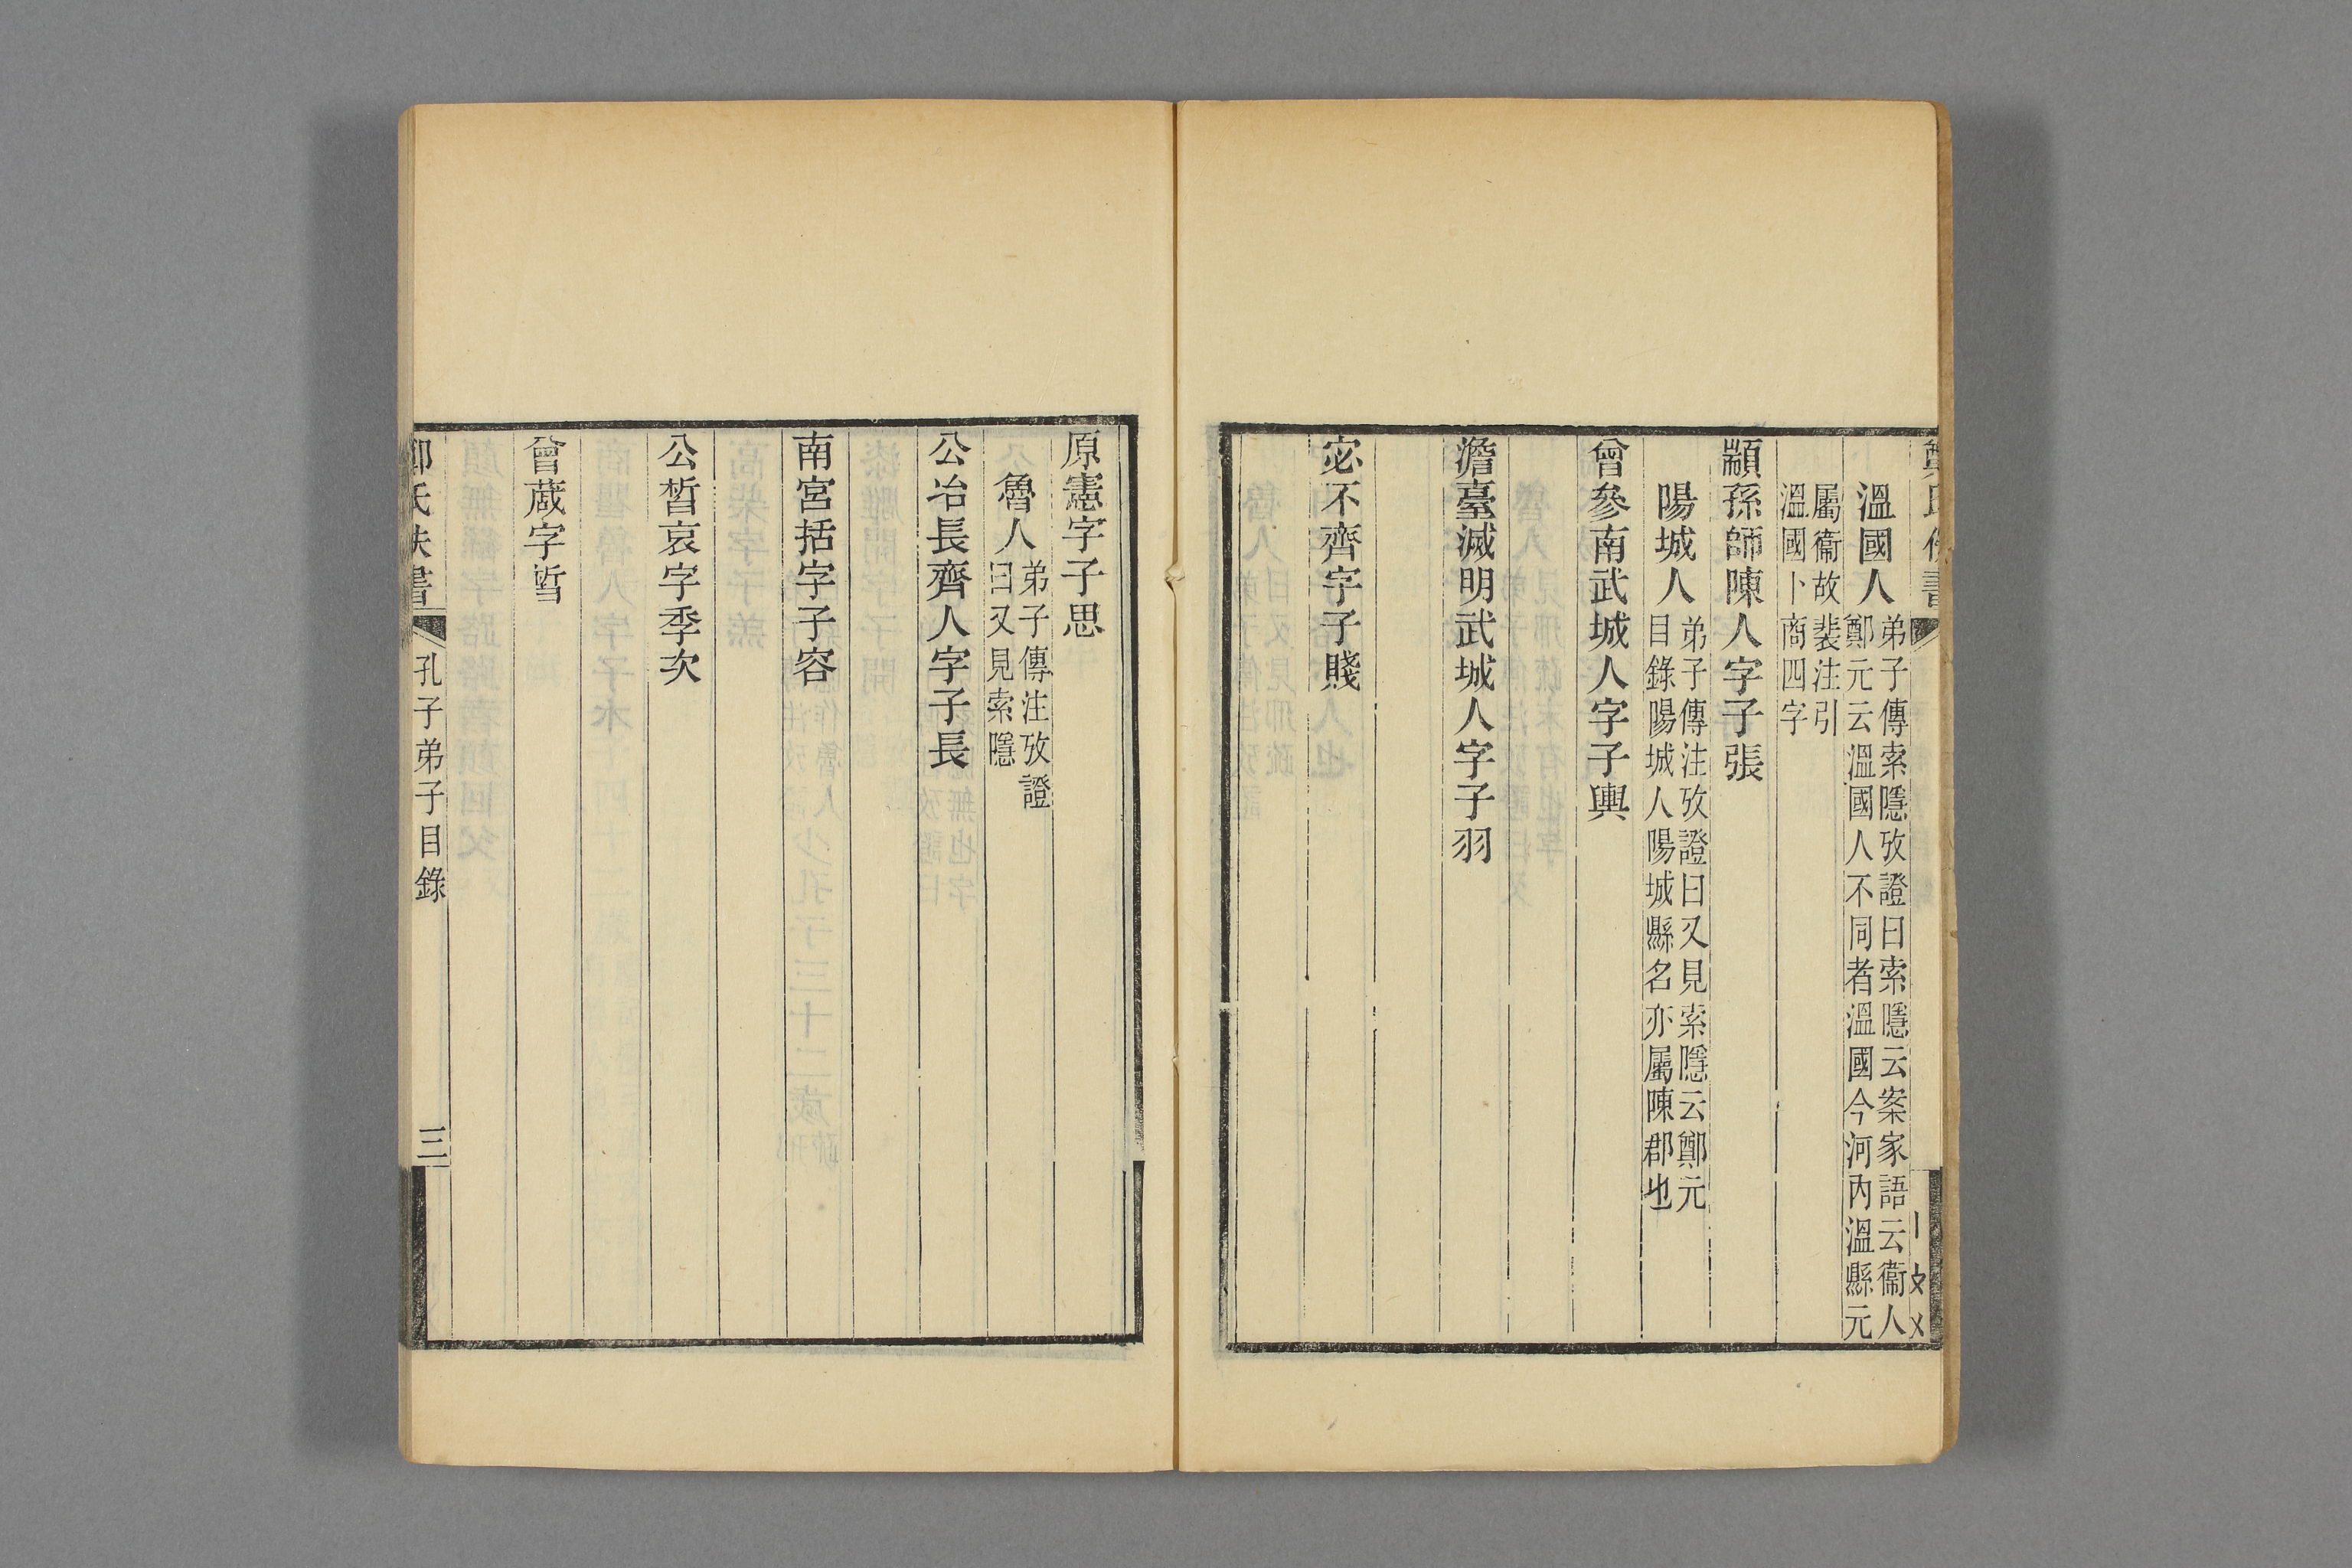 溫國人弟子傳索隱攷證曰索隱云案家語云衞人
鄭元云溫國人不同者溫國今河內溫縣元
屬衞故裴注引
溫國卜商四字
顓孫師陳人字子張
陽城人弟子傳注攷證曰又見索隱云鄭元
目錄陽城人陽城縣名亦屬陳郡也
曾參南武城人字子輿
澹臺滅明武城人字子羽
宓不齊字子賤
原憲字子思
魯人弟子傳注攷證
曰又見索隱
公冶長齊人字子長
南宮括字子容
公晳哀字季次
曾蒧字晳
氏佚書
孔子弟子目錄
三